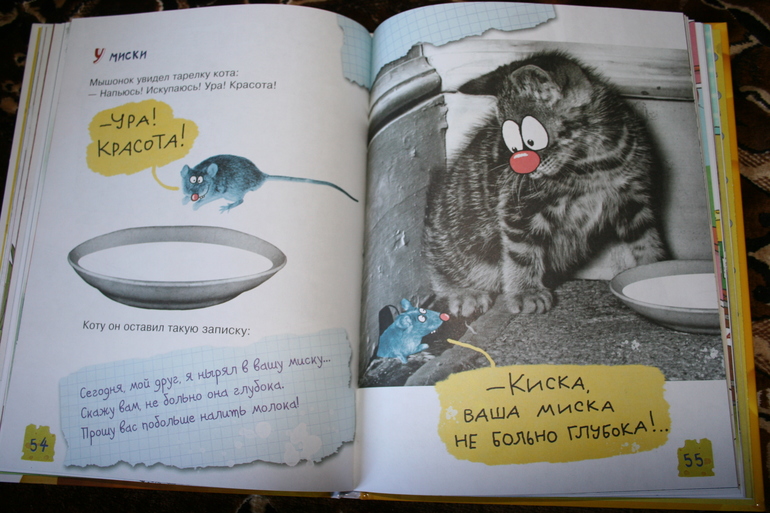 У миски
Мышонок увидел тарелку кота:
— Напьюсь! Искупаюсь! Ура! Красота!
—УРА!
КРАСОТА!
Коту он оставил такую записку:
Сегодня, мой друг, я нырял в вашу миску...
Скажу вам, не больно она глубока.
Прошу вас побольше налить молока!
54
—КИСКА,
ВАША МИСКА
НЕ БОЛЬНО ГЛУБОКА!..
55